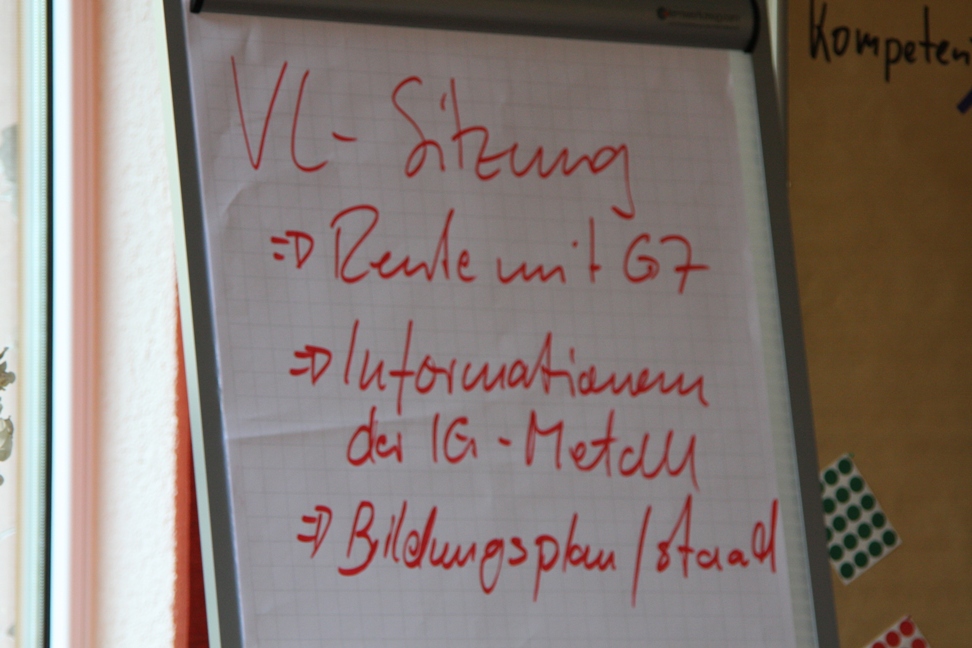 VL-Sitzung
⇒ Rente mit 67
⇒ Informationen
der IG-Metall
⇒ Bildungsplan/
Kompeten